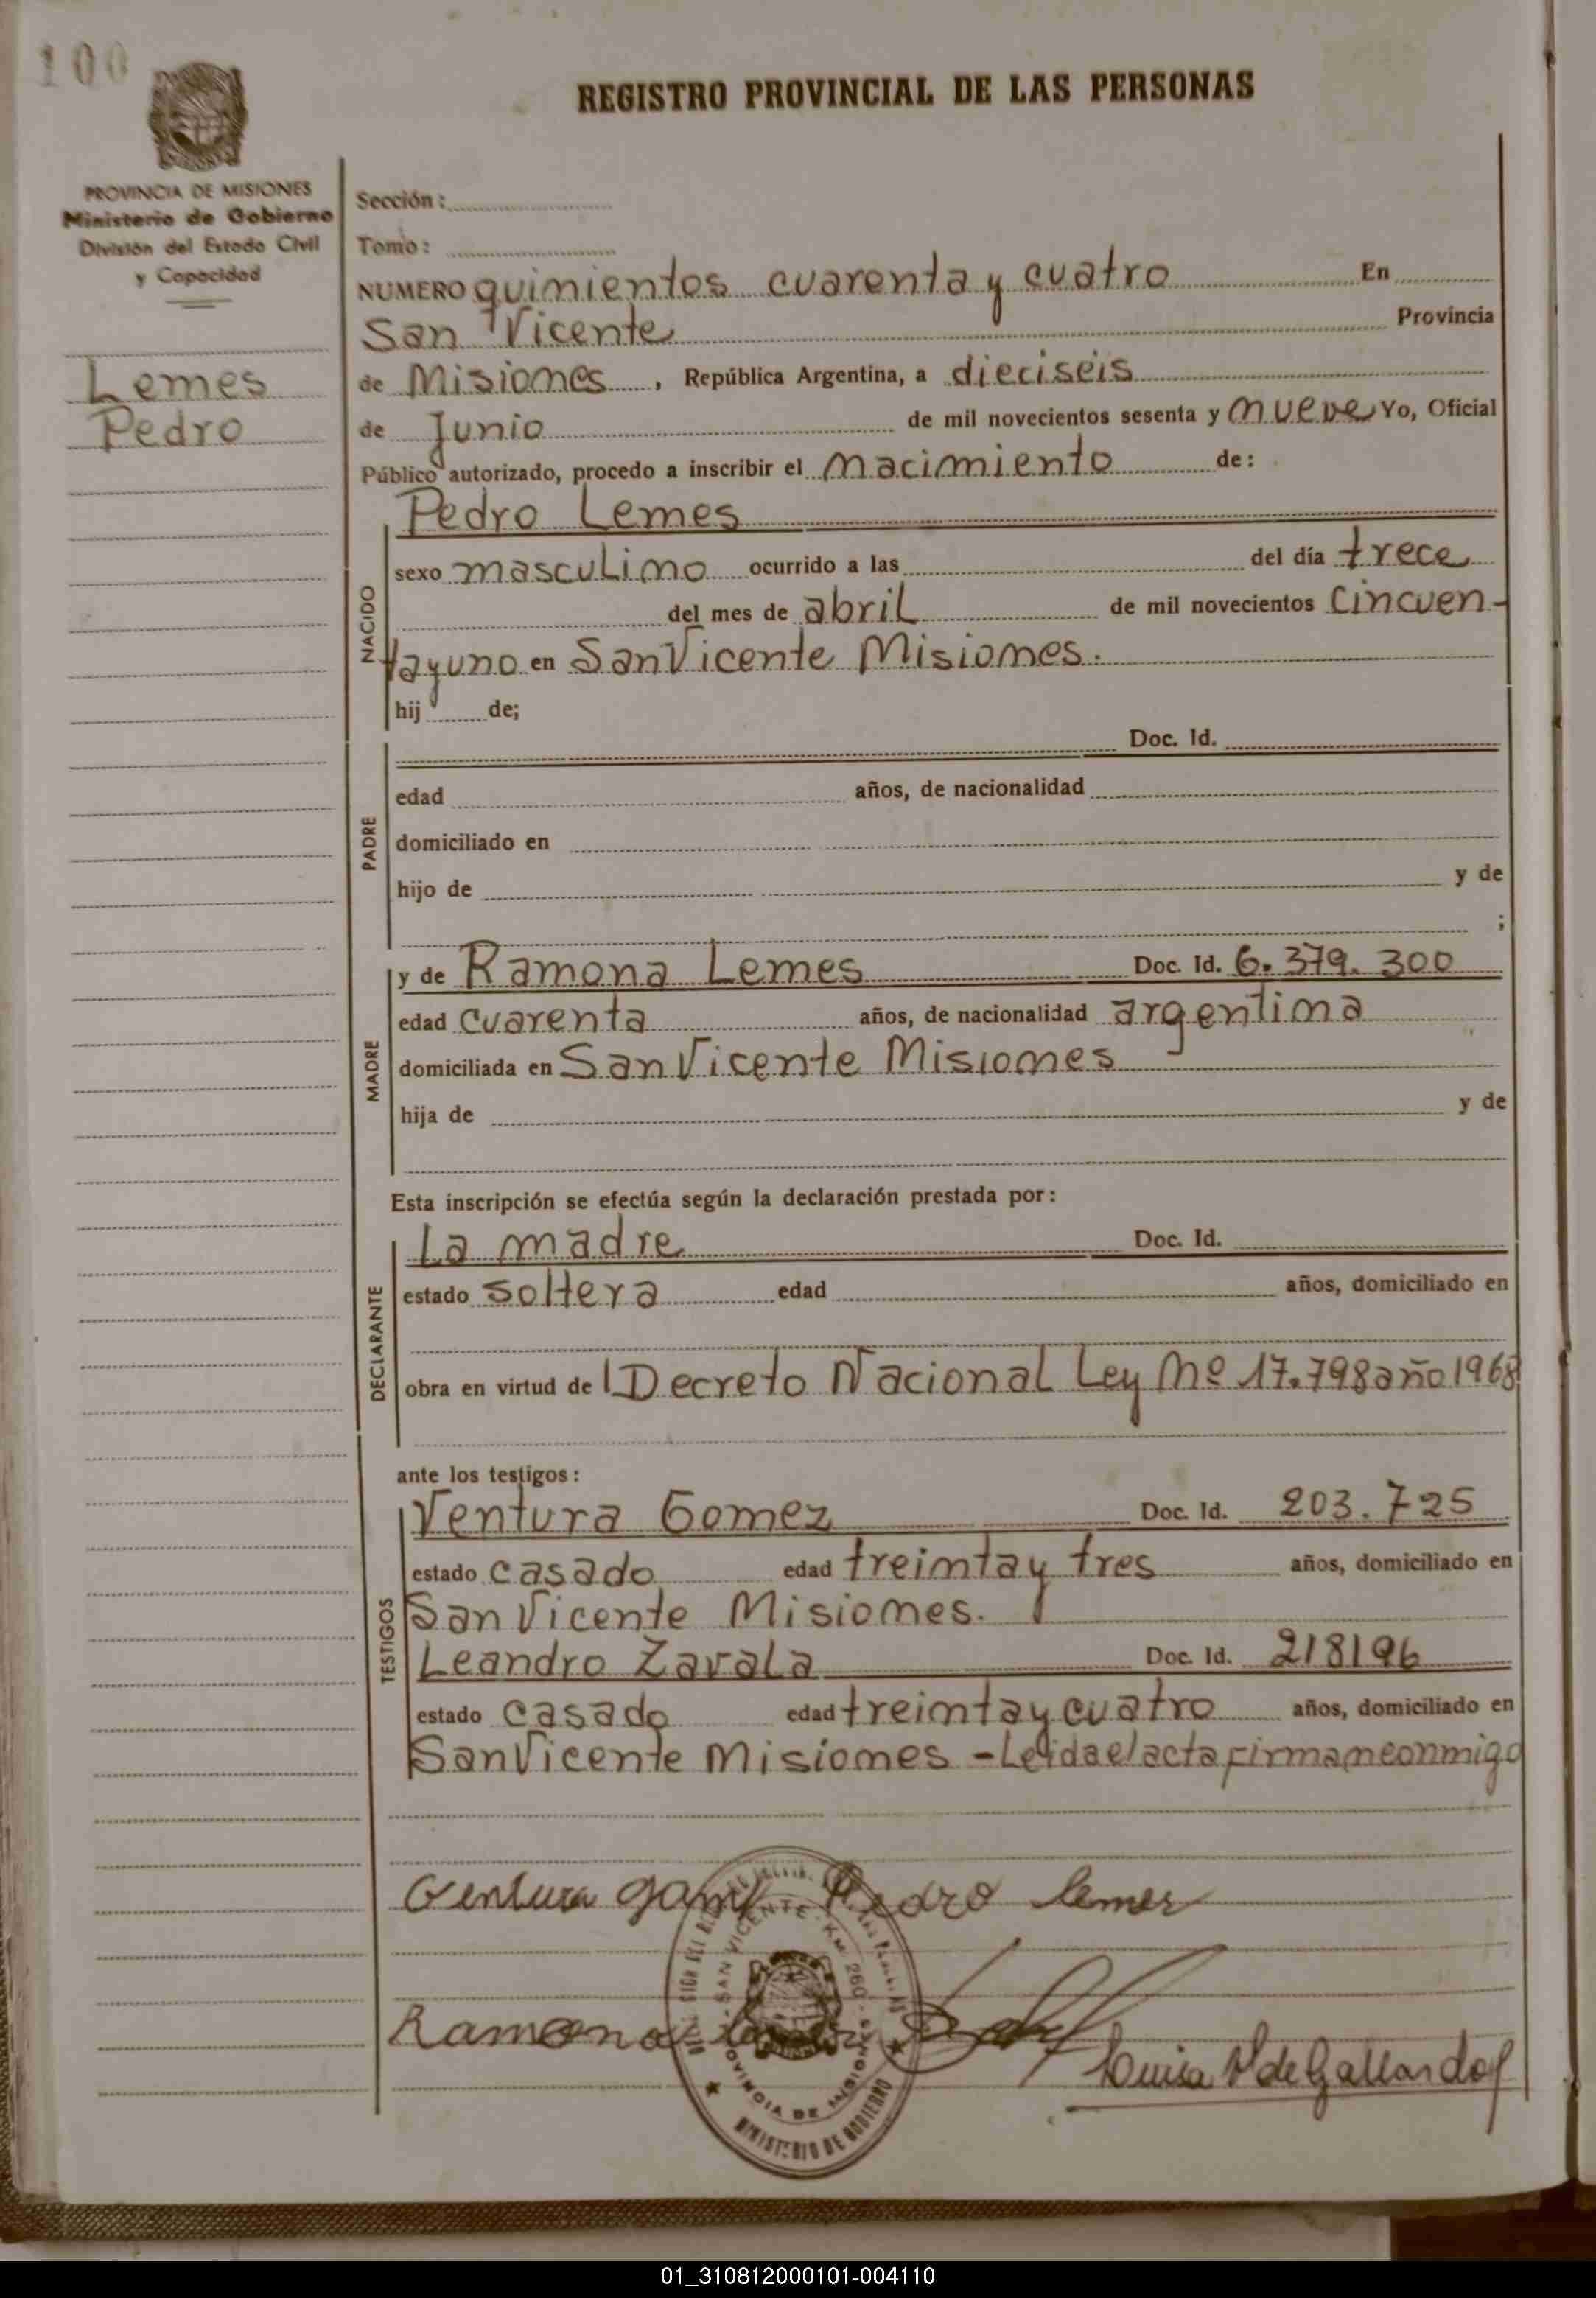 100
REGISTRO PROVINCIAL DE LAS PERSONAS
PROVINCIA DE MISIONES
Ministerio de Gobierno
División del Estado Civil
y Capacidad
Lemes
Pedro
Sección:
Tomo:
NUMERO quinientos cuarenta y cuatro En
San Vicente Provincia
de Misiones, República Argentina, a dieciseis
de Junio de mil novecientos sesenta y nueve Yo, Oficial
Público autorizado, procedo a inscribir el nacimiento de:
NACIDO
Pedro Lemes
sexo masculino ocurrido a las del día trece
del mes de abril de mil novecientos cincuen-
tayuno en San Vicente Misiones.
hij de;
PADRE
Doc. Id.
edad años, de nacionalidad
domiciliado en
hijo de y de
;
MADRE
y de Ramona Lemes Doc. Id. 6.379.300
edad cuarenta años, de nacionalidad argentina
domiciliada en San Vicente Misiones
hija de y de
Esta inscripción se efectúa según la declaración prestada por:
DECLARANTE
La madre Doc. Id.
estado soltera edad años, domiciliado en
obra en virtud de Decreto Nacional Ley Nº 17.798 año 1968
ante los testigos:
TESTIGOS
Ventura Gomez Doc. Id. 203.725
estado casado edad treinta y tres años, domiciliado en
San Vicente Misiones.
Leandro Zavala Doc. Id. 218196
estado casado edad treinta y cuatro años, domiciliado en
San Vicente Misiones - Leida el acta firman conmigo
Ventura Gomez Pedro Lemes
Ramona
Luisa de Gallardo
SAN VICENTE - KM. 260 -
PROVINCIA DE MISIONES
MINISTERIO DE GOBIERNO
01_310812000101-004110